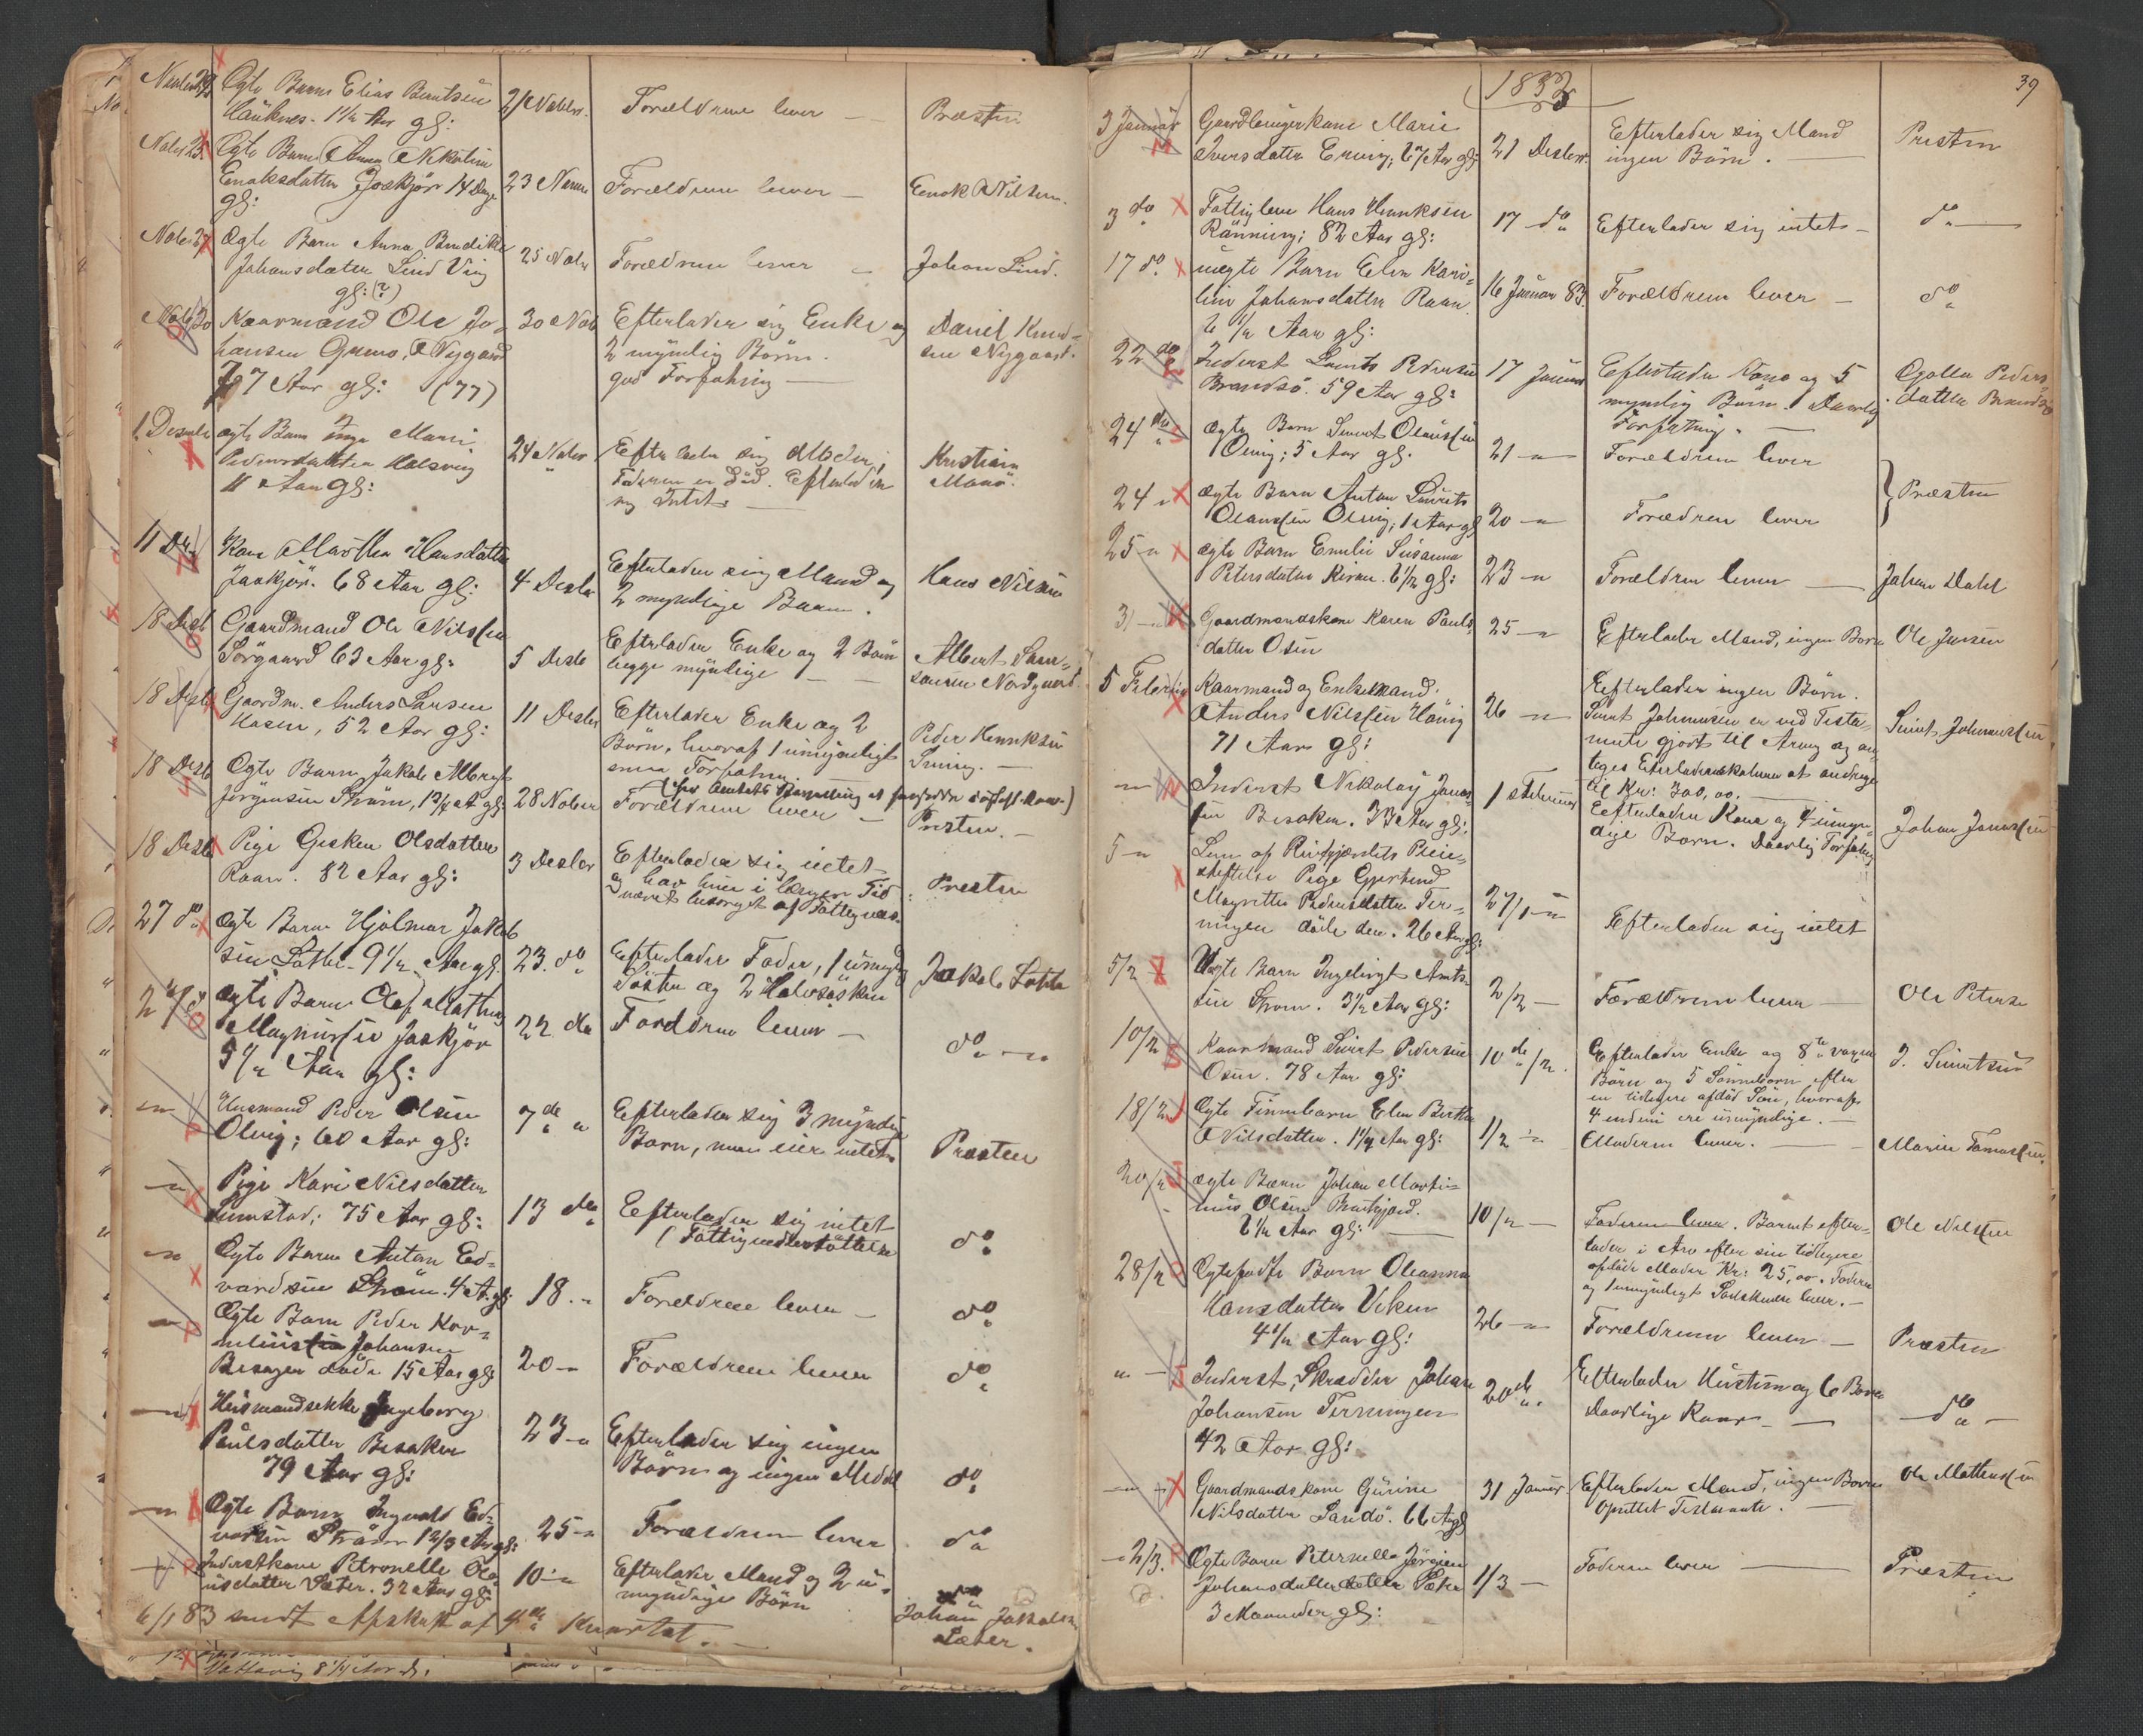 Ægte Barn Elias Berntsen
Hauknes. 1½ Aar gl:
21 Novbr.
Forældrene lever —
Præsten
Ægte Barn Anna Nikoline
Enoksdatter Jøskjør 14 Dage
gl:
23 Novem
Forældrene lever —
Enok Nilsen.
Ægte Barn Anna Benedikte
Johansdatter Lind Ving
gl: (?)
25 Novbr
Forældrene lever —
Johan Lind.
Kaarmand Ole Jo-
hansen Nygaard
77 Aar gl: (77)
30 Nov
Efterlader sig Enke og
2 myndig Børn.
god Forfatning —
Daniel Knud-
sen Nygaard.
1 Desembr
ægte Barn Inga Marie
Pedersdatter Halsving
11 Aar gl:
24 Novbr
Efterlader sig Moder;
Faderen er død. Efterlader
sig Intet —
Kristian
Moan.
11 De
Kone Martha Hansdatter
Jøskjør. 68 Aar gl:
4 Desbr
Efterlader sig Mand og
2 myndige Børn.
Hans Nilsen
18 Desb
Gaardmand Ole Nilssen
Sörgaard 63 Aar gl:
5 Desb
Efterlader Enke og 2 Børn
begge myndige —
Albert Sam-
sonsen Nordgaard.
18 Desb
Gaardm. Anders Larsen
Hasen, 52 Aar gl:
11 Desbr
Efterlader Enke og 2
Børn, hvoraf 1 umyndigt
Peder Henriksen
18 Desb
Ægte Barn Jakob Albregt
Jørgensen Strøm, 1¾ A gl:
28 Novbr
Forældrene lever —
Presten. —
18 Desb
Pige Gjesken Olsdatter
Raan. 82 Aar gl:
3 Desbr
Efterlader sig intet
og har hun i længere Tid
været besørget af Fattigvæs.
Presten
27 do
Ægte Barn Hjalmar Jakob
sen Sætter. 9½ Aar gl.
23. do
Efterlader Fader, 1 umyndig
Søster og 2 Halvsøsken
Jakob Sætter
Ægte Barn Olaf Mathias
Magnussen Jøskjør
5½ Aar gl:
22 do
Forældrene lever —
do —
Husmand Peder Olsen
Olving; 60 Aar gl:
7de "
Efterlader sig 3 myndige
Børn, men eier intet.
Præsten
Pige Kari Nilsdatter
Sumstad; 75 Aar gl:
13 de
Efterlader sig intet
(Fattigunderstøttelse
do
Ægte Barn Anton Ed-
vardsen Strøm. 4 A. gl:
18. "
Forældrene lever —
do
Ægte Barn Peder Kor-
nelius Johansen
Besager døde 15 Aar gl:
20 —
Forældrene lever
do
Husmandsenke Ingeborg
Paulsdatter Besaker
79 Aar gl:
23 —
Efterlader sig ingen
Børn og ingen Midd
do
Ægte Barn Ingvald Ed-
vardsen Strøm 1⅔ A gl:
25 —
Forældrene lever
do
Inderstkone Petronelle Ola-
usdatter Sæter. 32 Aar gl:
10 —
Efterlader Mand og 2 u-
myndige Børn
Johan Jakobsen
Sæter.
6/1 83 sendt Afskrift af 4de Kvartal. —
8¼ Aar
39
1883
3 Januar
Gaardbrugerkone Marie
Iversdatter Erving; 67 Aar gl:
21 Desbr.
Efterlader sig Mand
ingen Børn. —
Presten
3 do
Fattiglem Hans Henriksen
Rønning; 82 Aar gl:
17 do
Efterlader sig intet —
do —
17 do
uægte Barn Elen Karo-
line Johansdatter Raan
6½ Aar gl:
16 Januar 83
Forældrene lever —
do
22 do
Inderst Laurits Pedersen
Brandsø. 59 Aar gl:
17 Januar
Efterlader Kone og 5
myndig Børn. Daarlig
Forfatning. —
datter Brandsø
24 do
Ægte Barn Sivert Olaussen
Olving; 5 Aar gl.
21 —
Forældrene lever
Præsten
24 "
ægte Barn Anton Laurits
Olaussen Olving, 1 Aar gl
20 —
Forældrene lever
25 "
ægte Barn Emilie Susanna
Petersdatter Kiran. 6½ gl:
23 —
Forældrene lever —
Johan Dahl
31 —
Gaardmandskone Karen Pauls
datter Osen
25 —
Efterlader Mand, ingen Børn
Ole Jensen
5 Februar
Kaarmand og Enkemand
Anders Nilssen Høiing
71 Aar gl:
26 —
Efterlader ingen Børn.
Sivert Johannesen er ved Testa-
mente gjort til Arving og an-
tages Efterladenskaberne at andrage
til Kr: 300,00.
Sivert Johannessen
Inderst Nikolai Jonas-
sen Besaker. 33 Aar gl:
1 Februar
Efterlader Kone og 4 umyn-
dige Børn. Daarlig Forfatng
Johan Jonassen
5 —
Lem af Reitgjærdets Pleie-
stiftelse Pige Gjertrud
Magrethe Pedersdatter Ter-
ningen døde den. 26 Aar gl:
27/1 —
Efterlader sig intet
5/2
Uægte Barn Ingebrigt Arnts-
sen Strøm. 3½ Aar gl:
2/2 —
Forældrene lever —
Ole Petersen
10/2
Kaarmand Sivert Pedersen
Osen. 78 Aar gl:
10 de/2.
Efterlader Enke og 8te voxne
Børn og 5 Sønnebørn efter
en tidligere afdød Søn, hvoraf
4 endnu ere umyndige. —
J. Sivertsen
18/2
Ægte Finnebarn Elen Bertha
Nilsdatter. 1¼ Aar gl:
1/2 —
Moderen lever. —
Marie Tomassen.
20/2
ægte Barn Johan Marti-
nus Olsen
6½ Aar gl: —
10/2 —
Faderen lever. Barnet efter-
lader i Arv efter sin tidligere
afdøde Moder Kr: 25,00. Faderen
og 1 umyndigt Sødskende lever. —
Ole Nilssen
28/2
Ægtefødte Barn Oleanna
Hansdatter Viken
4½ Aar gl:
26 —
Forældrene lever —
Præsten
" —
Inderst, Skrædder Johan
Johansen Terningen
42 Aar gl:
20de "
Efterlader Hustru og 6 Børn
Daarlige Kaar —
do —
Gaardmandskone Gurine
Nilsdatter Sandø. 66 A gl
31 Januar
Efterlader Mand, ingen Børn
oprettet Testamente. —
Ole Mathiassen
2/3.
Ægte Barn Peternelle Jørgine
Johansdatter Sæter
3 Maaneder gl:
1/3 —
Faderen lever —
Præsten